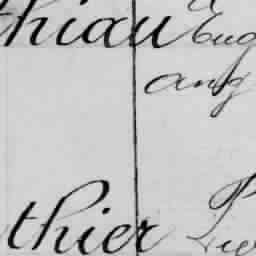 thiau Eug
ang
thier